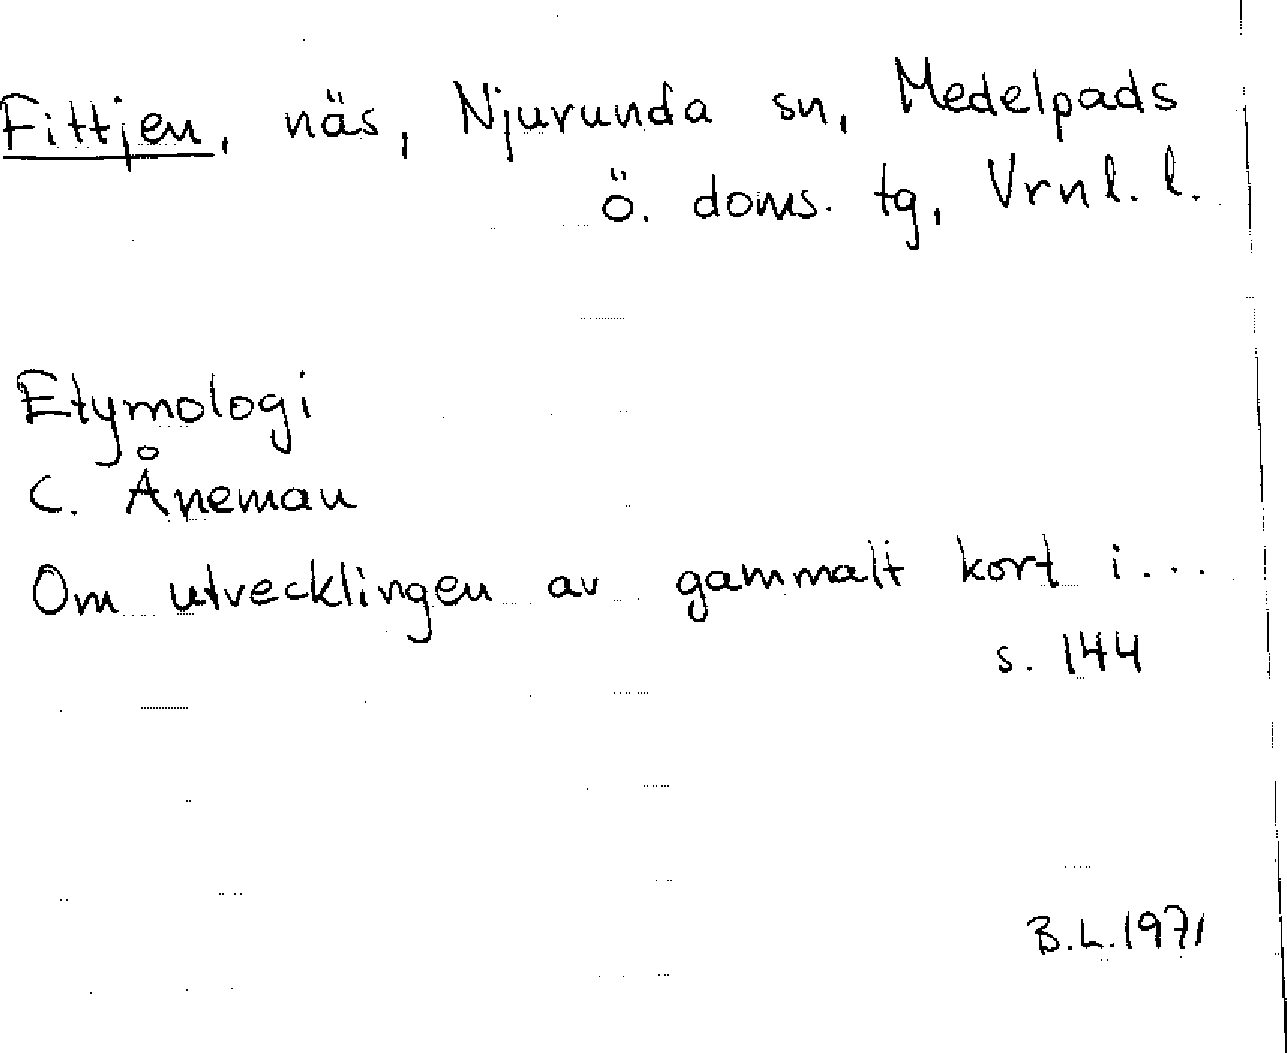 Fittjen, näs, Njurunda sn, Medelpads
ö. doms. tg, Vrnl. l.
Etymologi
C. Åneman
Om utvecklingen av gammalt kort i...
s. 144
B.L. 1971